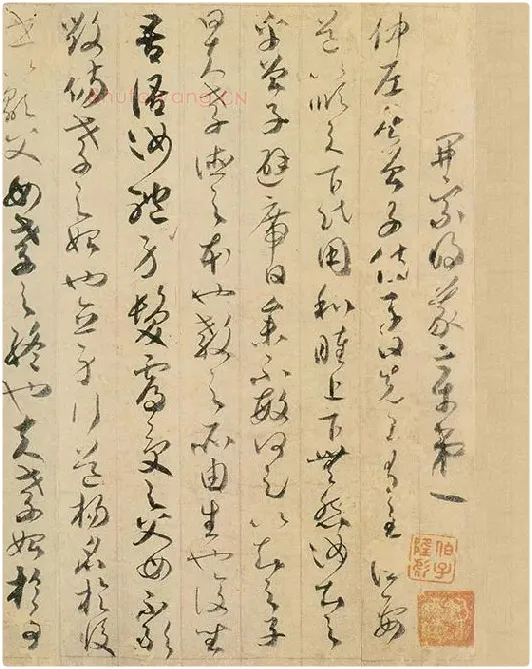 開宗明義章第一
仲尼居曾子侍子曰先王有至德要
道以順天下民用和睦上下無怨汝知之
乎曾子避席曰參不敏何足以知之子
曰夫孝德之本也教之所由生也復坐
吾語汝體身髮膚受之父母不敢
毀傷孝之始也立身行道揚名於後
世以顯父母孝之終也夫孝始於事